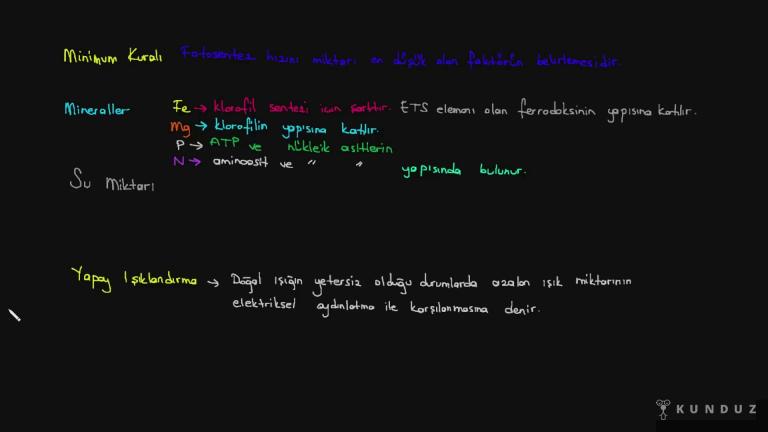 Minimum Kuralı Fotosentez hızını miktarı en düşük olan faktörün belirlemesidir.
Mineraller Fe → klorofil sentezi için şarttır. ETS elemanı olan ferrodoksinin yapısına katılır.
Mg → klorofilin yapısına katılır.
P → ATP ve nükleik asitlerin
N → aminoasit ve " " yapısında bulunur.
Su Miktarı
Yapay Işıklandırma → Doğal ışığın yetersiz olduğu durumlarda azalan ışık miktarının
elektriksel aydınlatma ile karşılanmasına denir.
KUNDUZ